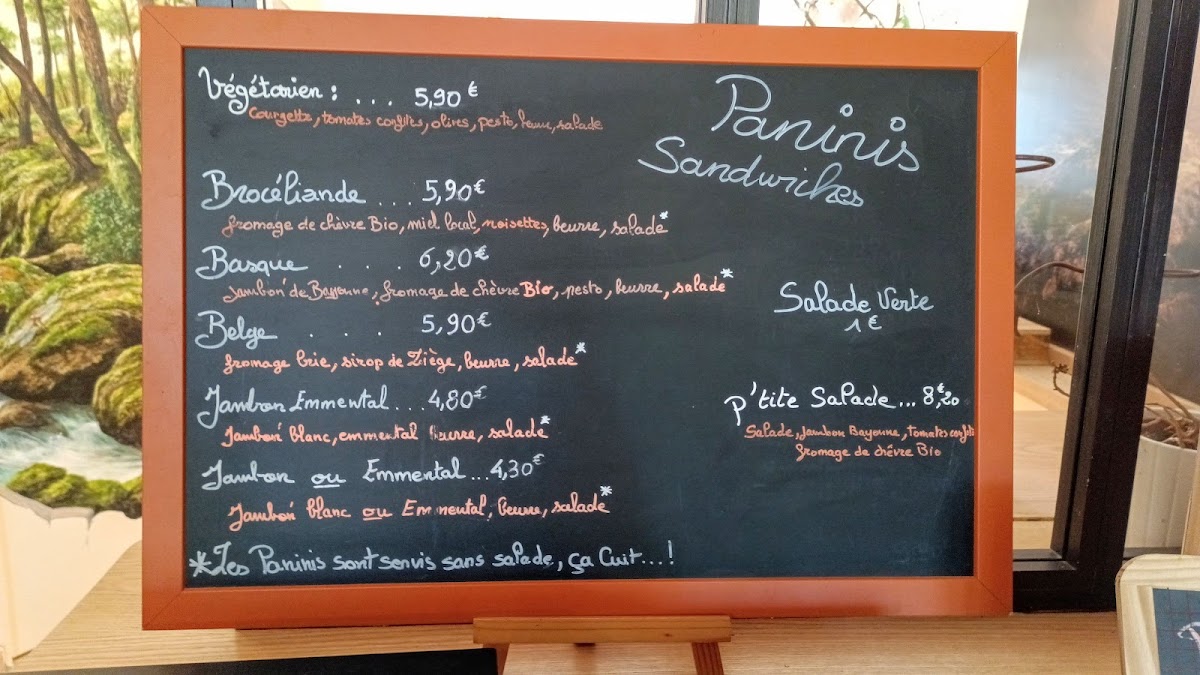 Paninis
Sandwiches
Végétarien : ... 5,90 €
Courgette, tomates confites, olives, pesto, beurre, salade
Brocéliande .... 5,90 €
fromage de chèvre Bio, miel local, noisettes, beurre, salade*
Basque .... 6,20 €
Jambon de Bayonne, fromage de chèvre Bio, pesto, beurre, salade*
Belge .... 5,90 €
fromage brie, sirop de Liège, beurre, salade*
Jambon Emmental ... 4,80 €
Jambon blanc, emmental beurre, salade*
Jambon ou Emmental ... 4,30 €
Jambon blanc ou Emmental, beurre, salade*
*Les Paninis sont servis sans salade, ça Cuit ... !
Salade Verte
1 €
p'tite Salade ... 8,€20
Salade, Jambon Bayonne, tomates confites
fromage de chèvre Bio